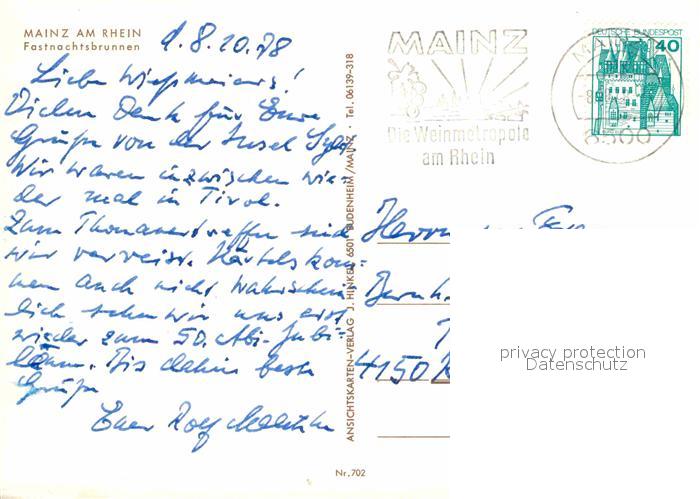 MAINZ AM RHEIN
Fastnachtsbrunnen
d. 8.10.78
Liebe Wießmeiers!
Vielen Dank für Eure
Grüße von der Insel Sylt
Wir waren inzwischen wie-
der mal in Tirol.
Zum Thomanertreffen sind
wir verreist. Härtels kom-
men auch nicht. Wahrschein
lich sehen wir uns erst
wieder zum 50. Abi-Jubi-
läum. Bis dahin beste
Grüße
Euer Rolf
ANSICHTSKARTEN-VERLAG J. HINKEL 6501 BUDENHEIM/MAINZ, Tel. 06139-318
MAINZ
Die Weinmetropole
am Rhein
DEUTSCHE BUNDESPOST
40
6500
Herrn
Bernh.
4150
privacy protection
Datenschutz
Nr. 702